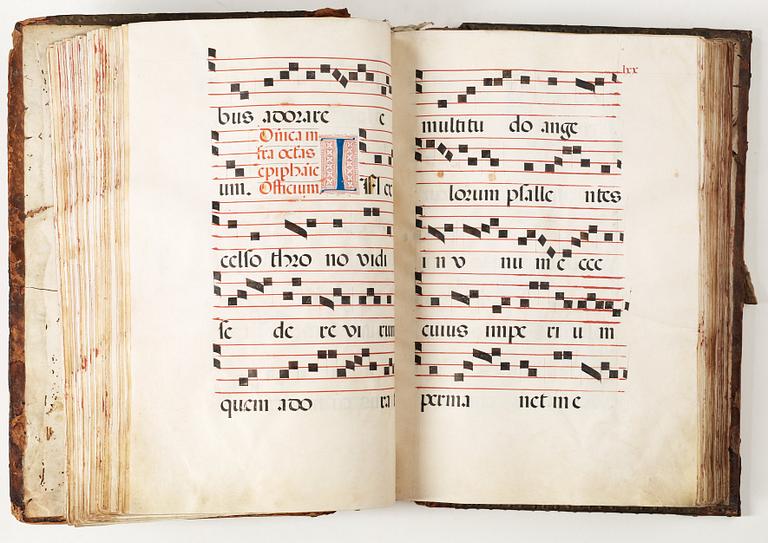 bus adorare e
Dñica in
fra octas
epiphaīe
um. Officium In ex
celso thro no vidi
se de re vi rum
quem ado ra
lxx
multitu do ange
lorum psalle ntes
i n v nu m e ecc
cuius impe ri u m
perma net in e